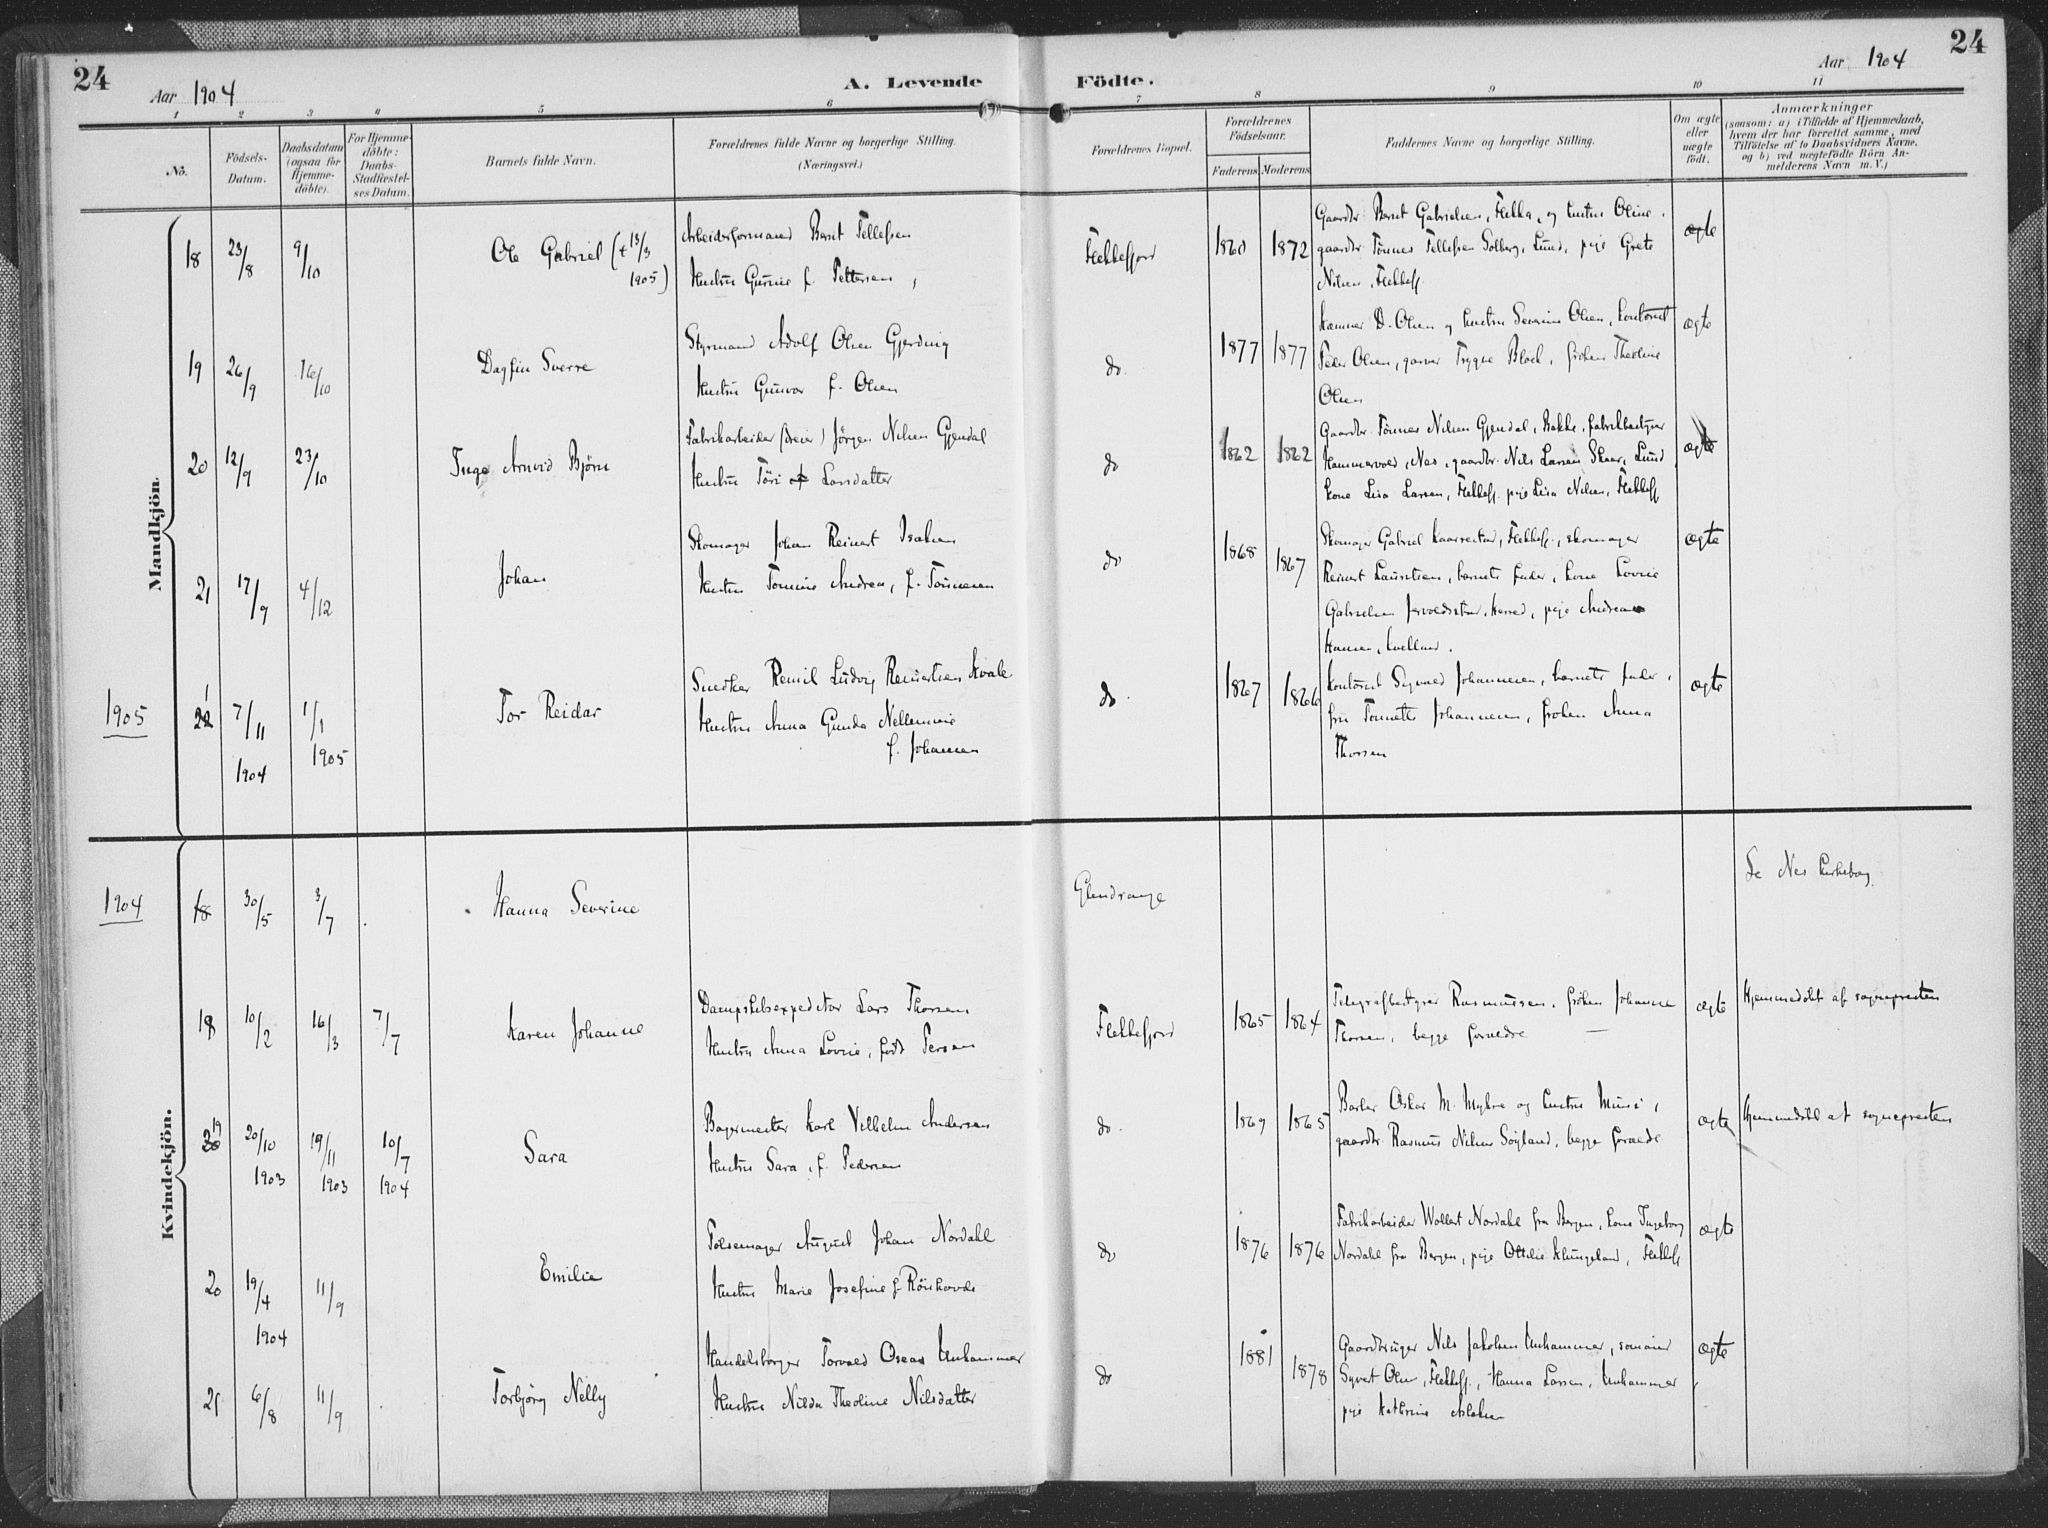 24
Aar 1904
A. Levende Födte.
Aar 1904
24
1 2 3 4 5 6 7 8 9 10 11
No.
Födsels-Datum.
Daabsdatum (ogsaa for Hjemme-döbte).
For Hjemme-döbte: Daabs-Stadfæstel-ses Datum.
Barnets fulde Navn.
Forældrenes fulde Navne og borgerlige Stilling. (Næringsvei.)
Forældrenes Bopæl.
Forældrenes Födselsaar.
Faderens Moderens
Faddernes Navne og borgerlige Stilling.
Om ægte eller uægte födt.
Anmærkninger
(saasom: a) i Tilfælde af Hjemmedaab, hvem der har forrettet samme, med Tilföielse af to Daabsvidners Navne, og b) ved uægtefödte Börn An-melderens Navn m. V.)
Mandkjön.
18 23/8 9/10 Ole Gabriel († 13/3 1905)
Arbeidsformand Bernt Tellefsen
Hustru Gurine f. Pettersen
Flekkefjord 1860 1872
Gaardbr. Bernt Gabrielsen, Flikka, og hustru Oline,
gaardbr. Tönnes Tellefsen Solberg, Lund, pige Grete
Nilsen, Flekkefj.
ægte
19 26/9 16/10 Dagfin Sverre
Styrmand Adolf Olsen Gjerding
Hustru Gunvor f. Olsen
do. 1877 1877
Kæmner D. Olsen og hustru Severine Olsen, kontorist
Peder Olsen, garver Trygve Bloch, fröken Theoline
Olsen
ægte
20 12/9 23/10 Inge Arnvid Björn
Fabrikarbeider (dreier) Jörgen Nilsen Gjendal
Hustru Töri Larsdatter
do 1862 1862
Gaardbr. Tönnes Nilsen Gjendal, Bakke, fabrikbestyrer
Hammervold, Nes, gaardbr. Nils Larsen Skaar, Lund
kone Lisa Larsen, Flekkefj. pige Lisa Nilsen, Flekkefj.
ægte
21 17/9 4/12 Johan
Skomager Johan Reinert Isaksen
Hustru Tomine Andrea, f. Tönnesen
do 1868 1867
Skomager Gabriel, Flekkefj., skomager
Reinert Lauritsen, barnets fader, kone Lovise
Gabrielsen, Herred, pige Andrea
Hansen,
ægte
1905
1 7/11 1904 1/1 1905 Tor Reidar
Snedker Remil Ludvig Reinertsen Kvale
Hustru Anna Gunda Nellemine
f. Johannesen
do. 1867 1866
Kontorist Sigvald Johannesen, barnets fader,
fru Tonnette Johannesen, fröken Anna
Thorsen
ægte
Kvindekjön.
1904
18 30/5 3/7 Hanna Severine
Glendrange
Se Nes Kirkebog.
18 10/2 16/3 7/7 Karen Johanne
Dampskibsexpeditör Lars Thorsen
Hustru Anna Lovise, född Persen
Flekkefjord 1865 1864
Telegrafbestyrer Rasmussen, fröken Johanne
Thorsen, begge forældre
ægte
Hjemmedöbt af sognepresten
19 20/10 1903 19/11 1903 10/7 1904 Sara
Bagermester Karl Vilhelm Andersen
Hustru Sara, f. Pedersen
do. 1869 1865
Barber Oskar M. Myhre og hustru Mimi,
gaardbr. Rasmus Nilsen Söyland, begge forældre
ægte
Hjemmedöbt af sognepresten
20 19/4 1904 11/9 Emilie
Pölsemager August Johan Nordahl
Hustru Marie Josefine f.
do 1876 1876
Fabrikarbeider Wollert Nordahl fra Bergen, kone Ingeborg
Nordahl fra Bergen, pige Ottilie Klungeland, Flekkefj
ægte
21 6/8 11/9 Torbjörg Nelly
Handelsborger Torvald Oscar Unhammer
Hustru Nilda Theoline Nilsdatter
do 1881 1878
Gaardbruger Nils Jakobsen Unhammer,
Syvert Olsen, Flekkefj., Hanna Larsen, Unhammer
pige Kathrine
ægte